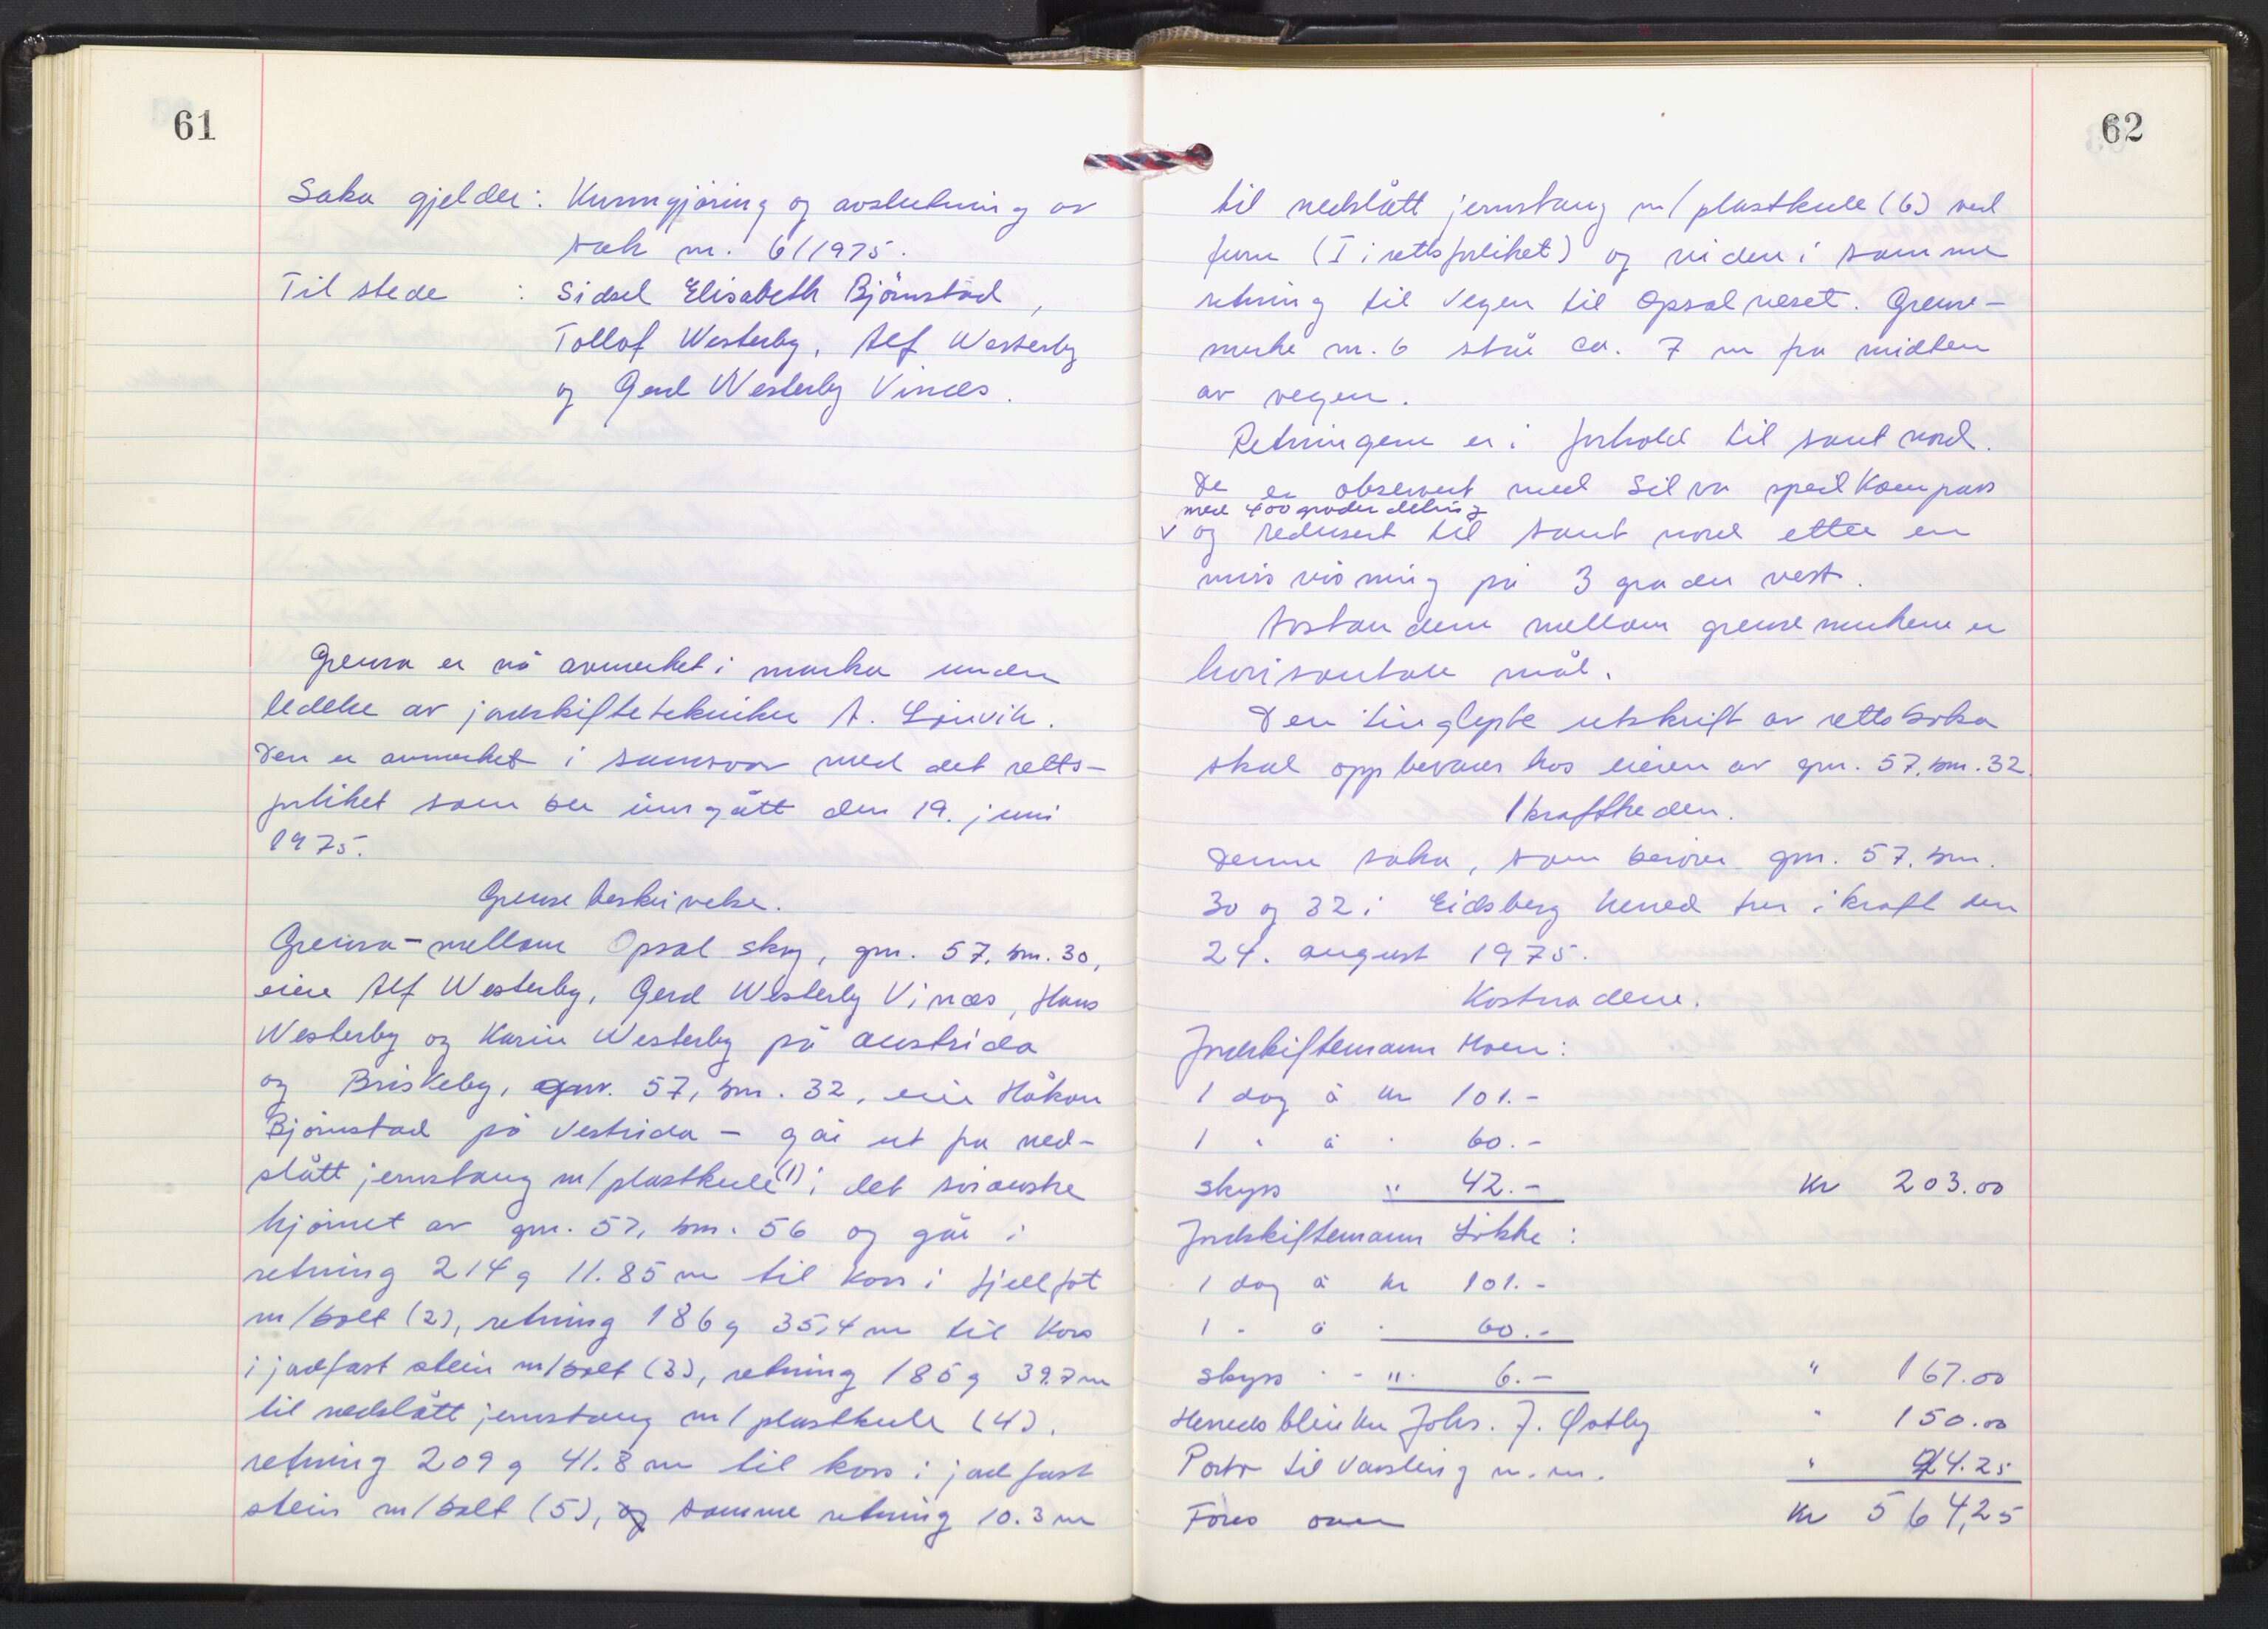 61
Saka gjelder: Kunngjøring og avslutning av
sak nr. 6/1975.
Til stede : Sidsel Elisabeth Björnstad,
Tollof Westerby, Alf Westerby
og Gerd Westerby Vinæs.
Grensa er nå avmerket i marka under
ledelse av jordskiftetekniker A. Lönvik.
Den er avmerket i samsvar med det retts-
forliket som ble inngått den 19. juni
1975.
Grensebeskrivelse.
Grensa - mellom Opsal skog, gnr. 57, bnr. 30,
eiere Alf Westerby, Gerd Westerby Vinæs, Hans
Westerby og Karin Westerby på austsida
og Briskeby, gnr. 57, bnr. 32, eier Håkon
Björnstad på vestsida - går ut fra ned-
slått jernstang m/plastkule (1) i det søraustre
hjørnet av gnr. 57, bnr. 56 og går i
retning 214 g 11.85 m til kors i fjellfot
m/bolt (2), retning 186 g 35,4 m til kors
i jordfast stein m/bolt (3), retning 185 g 39.7 m
til nedslått jernstang m/plastkule (4).
retning 209 g 41.8 m til kors i jordfast
stein m/bolt (5), og samme retning 10.3 m
62
til nedslått jernstang m/plastkule (6) ved
furu (I i rettsforliket) og videre i samme
retning til vegen til Opsalneset. Grense-
merke nr. 6 står ca. 7 m fra midten
av vegen.
Retningene er i forhold til sant nord.
De er observert med Silva speilkompass
med 400 grader deling
v og redusert til sant nord etter en
misvisning på 3 grader vest.
Avstandene mellom grensemerkene er
horisontale mål.
Den tinglyste utskrift av rettsboka
skal oppbevares hos eieren av gnr. 57, bnr. 32.
Ikrafttreden.
Denne saka, som berører gnr. 57, bnr.
30 og 32 i Eidsberg herred trer i kraft den
24. august 1975.
Kostnadene.
Jordskiftemann Moen:
1 dag à kr 101.-
1 " à " 60.-
skyss " 42.- kr 203.00
Jordskiftemann Løkke:
1 dag à kr 101.-
1 " à " 60.-
skyss - - " 6.- " 167.00
Herredsblinker Johs. J. Østby " 150.00
Porto til varsling m.m. " 44.25
Føres over kr 564,25